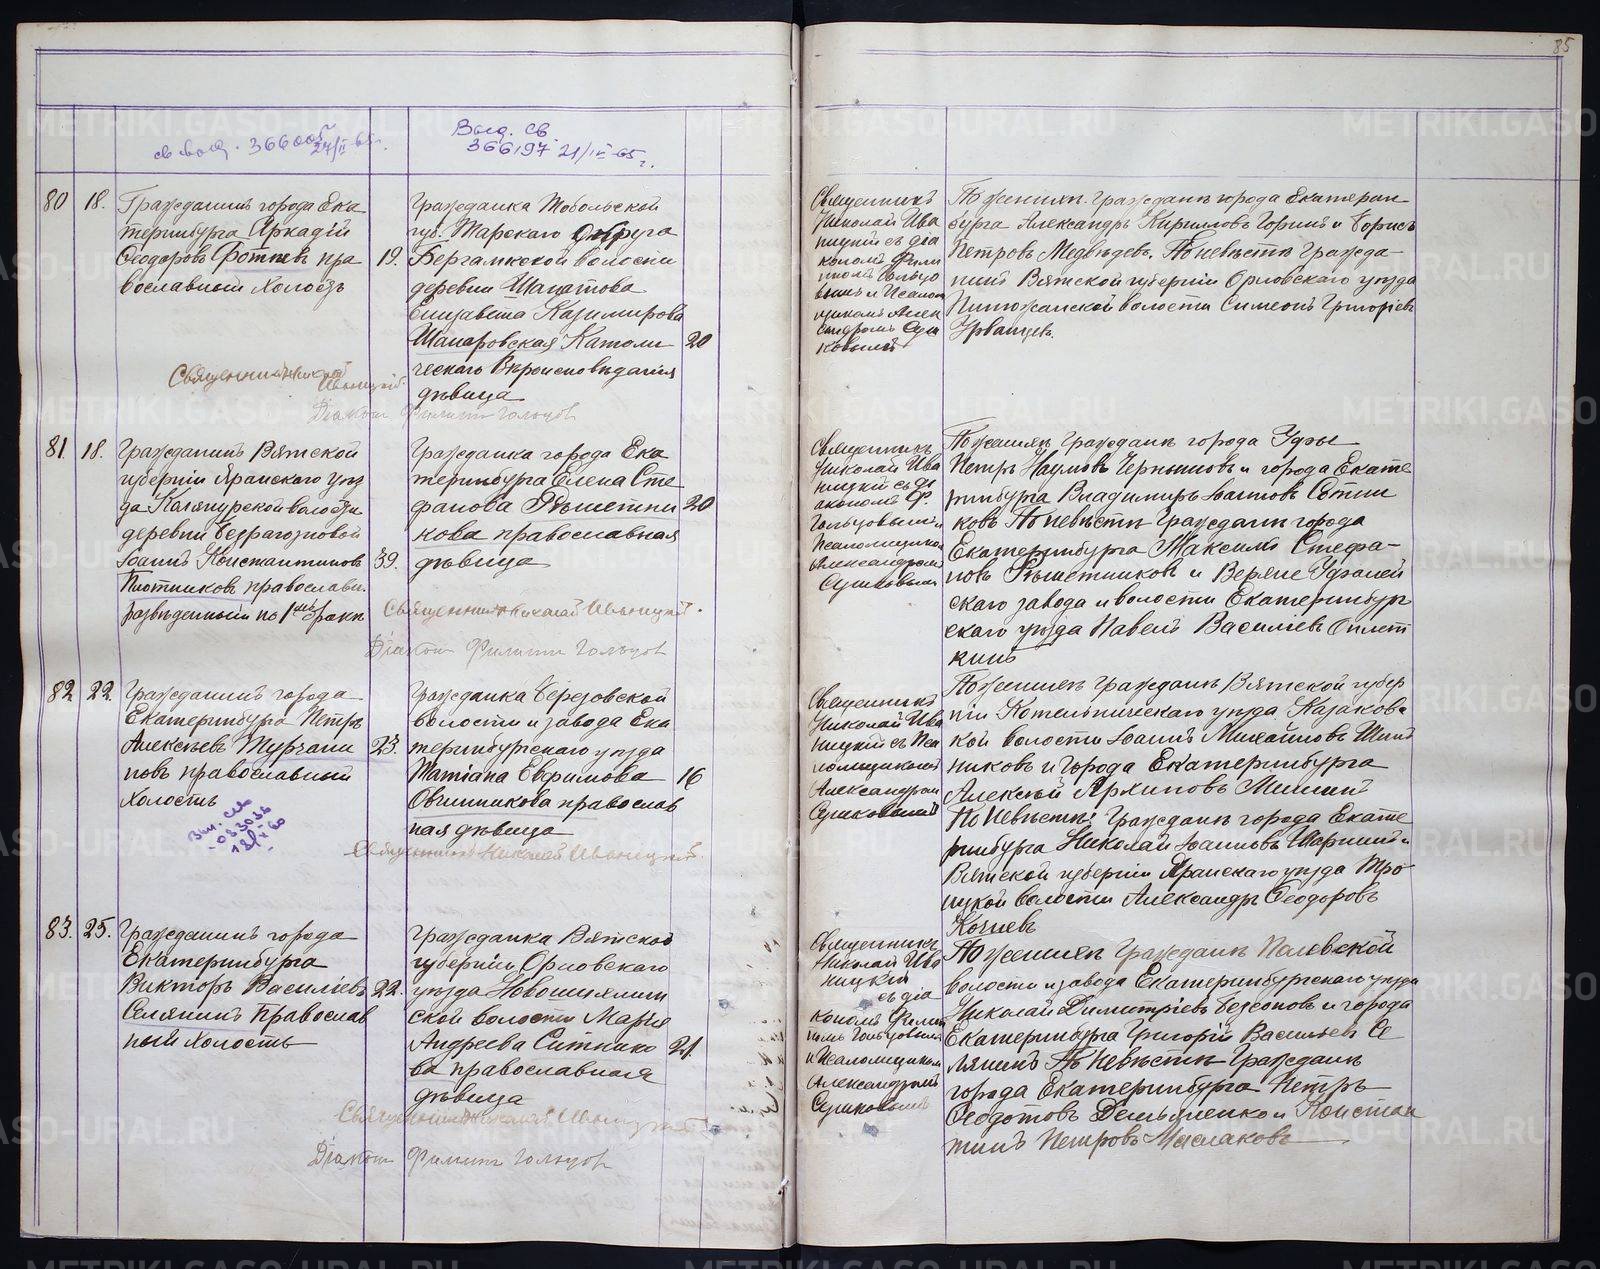 85
св выд. 366005
24/II-65г.
Выд. св.
366197 21/IV-65г.
80 18.
Гражданинъ города Ека
теринбурга Аркадій
Ѳеодоровъ пра
вославный Холостъ
19.
Гражданка Тобольской
губ. Тарскаго Округа
Бергамкской волости
деревни
Елизавета Казимирова
Католи
ческаго Вѣроисповѣданія
дѣвица
20
Священникъ Николай
Иваницкій.
Діаконъ Филиппъ Гольцов
Священникъ
Николай Ива
ницкій съ діа
кономъ Фили
ппомъ Гольцо
вымъ и Псалом
щикомъ Алек
сандромъ Суш
ковымъ
По женихѣ: Гражданъ города Екатерин
бурга Александръ Кирилловъ и Борисъ
Петровъ Медвѣдевъ. По невѣстѣ Гражда
нинъ Вятской губерніи Орловскаго уѣзда
волости Симеонъ Григорiевъ
Урванцевъ.
81. 18.
Гражданинъ Вятской
губерніи Яранскаго уѣз
да волости
деревни
Іоаннъ Константиновъ
Плотниковъ православн.
разведенный по 1му браку
39.
Гражданка города Ека
теринбурга Елена Сте
фанова Рѣшетни
кова православная
дѣвица
20
Священникъ Николай Иваницкій.
Діаконъ Филиппъ Гольцов
Священникъ
Николай Ива
ницкій съ ді
акономъ Ф.
Гольцовымъ и
Псаломщикомъ
Александромъ
Сушковымъ
По женихѣ Гражданъ города Уфы
Петръ Наумовъ Чернышовъ и города Екате
ринбурга Владимиръ Сѣтни
ковъ По невѣстѣ Гражданъ города
Екатеринбурга Максимъ Стефа-
новъ Рѣшетниковъ и Верхне Уфалей
скаго завода и волости Екатеринбург
скаго уѣзда Павелъ Василіевъ Оплет
кинъ
82 22.
Гражданинъ города
Екатеринбурга Петръ
Алексѣевъ Турчани
новъ православный
Холостъ
23.
Гражданка Березовской
волости и завода Ека
теринбургскаго уѣзда
Татіана Евфимова
Овчинникова православ
ная дѣвица
16
Священникъ Николай Иваницкій.
Священникъ
Николай Ива
ницкій съ Пса
ломщикомъ
Александром
Сушковымъ
По женихѣ Гражданъ Вятской губер
ніи Котельническаго уѣзда Казаковс
кой волости Іоаннъ Михайловъ
никовъ и Города Екатеринбурга
Алексѣй Архиповъ
По Невѣстѣ: Гражданъ города Екате
ринбурга Николай Іоанновъ и
Вятской губерніи Яранскаго уѣзда Тро
ицкой волости Александръ Ѳеодоровъ
83. 25.
Гражданинъ города
Екатеринбурга
Викторъ Василіевъ
Селянинъ Православ
ный Холостъ
22.
Гражданка Вятской
губерніи Орловскаго
уѣзда
ской волости Марія
Андреева Ситнико
ва православная
дѣвица
21.
Священникъ Николай Иваницкій
Діаконъ Филиппъ Гольцов
Священникъ
Николай Ива
ницкій
съ діа
кономъ Филип
помъ Гольцовымъ
и Псаломщикомъ
Александромъ
Сушковымъ
По женихѣ Гражданъ Полевской
волости и завода Екатеринбургскаго уѣзда
Николай Димитріевъ Безсоновъ и города
Екатеринбурга Григорій Васильевъ Се
лянинъ По Невѣстѣ Гражданъ
города Екатеринбурга Петръ
Ѳедотовъ и Констан
тинъ Петровъ Маслаковъ
METRIKI.GASO-URAL.RU